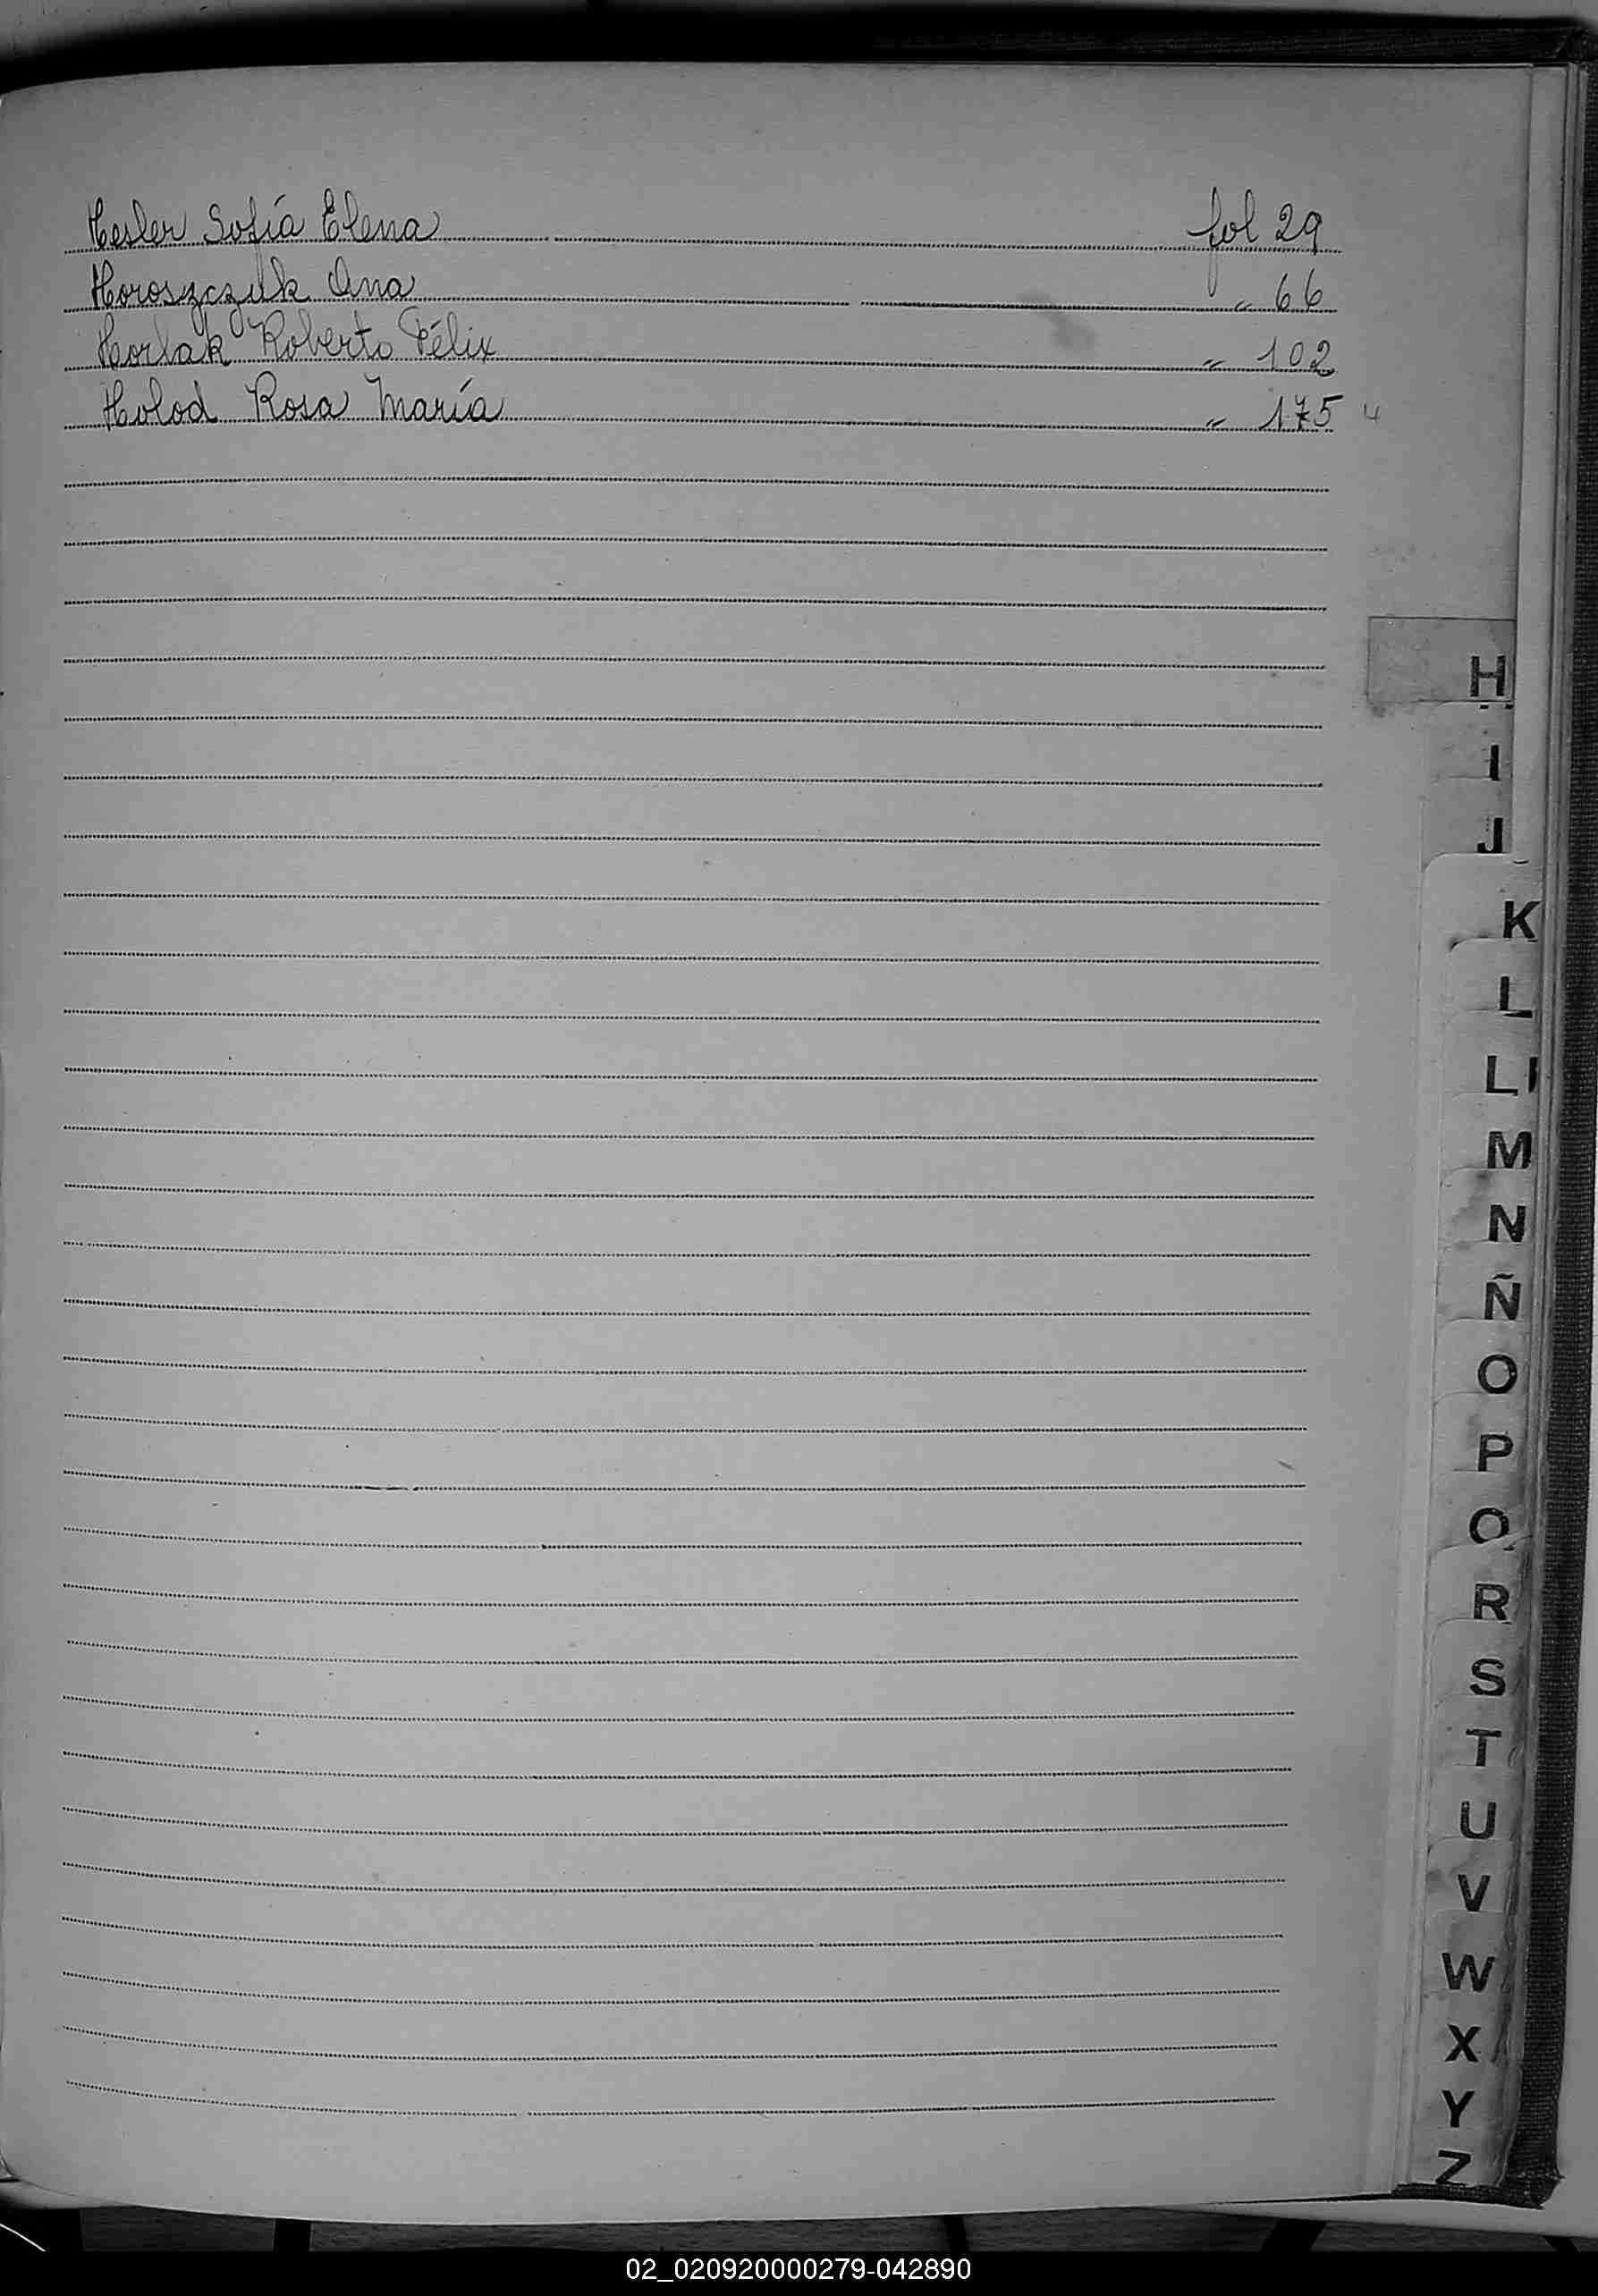 Hesler Sofía Elena fol 29
Horoszczuk Ana " 66
Horlak Roberto Félix " 102
Holod Rosa María " 175 4
H
I
J
K
L
Ll
M
N
Ñ
O
P
Q
R
S
T
U
V
W
X
Y
Z
02_020920000279-042890